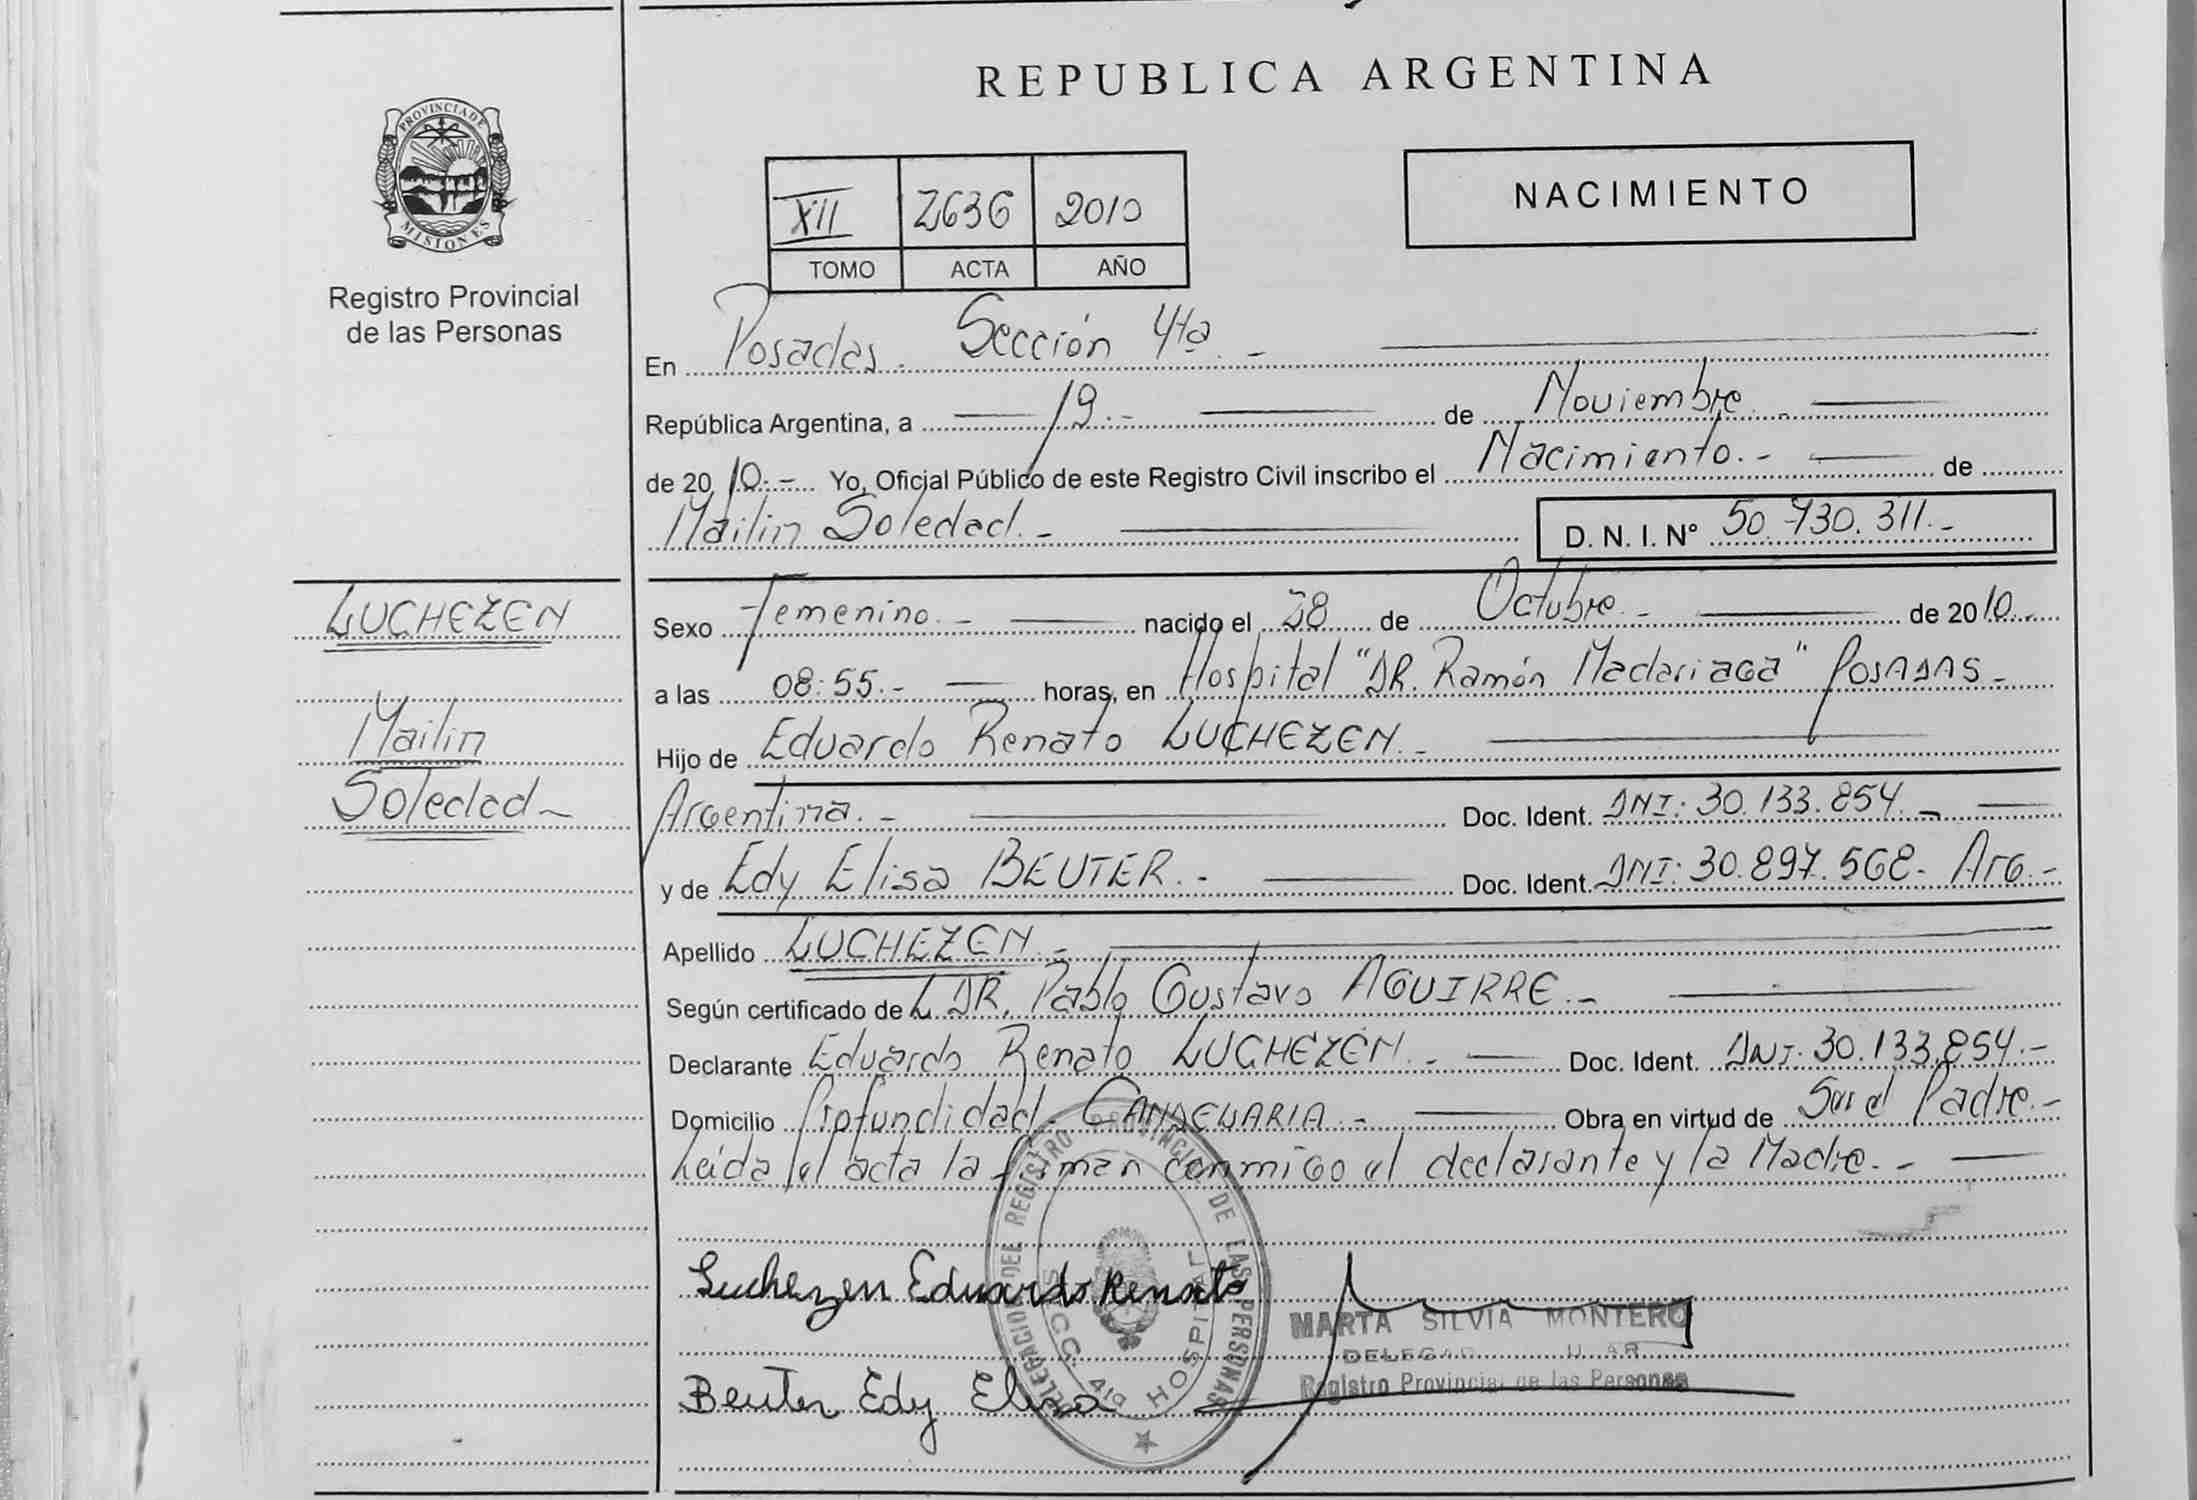 REPUBLICA ARGENTINA
PROVINCIA DE
MISIONES
Registro Provincial
de las Personas
XII 2636 2010
TOMO ACTA AÑO
NACIMIENTO
En Posadas. Sección 4ta. -
República Argentina, a 19.- de Noviembre. -
de 2010.- Yo, Oficial Público de este Registro Civil inscribo el Nacimiento.- de
Mailin Soledad.- D. N. I. Nº 50.730.311.-
LUCHEZEN
Mailin
Soledad-
Sexo Femenino.- nacido el 28 de Octubre.- de 2010.-
a las 08:55.- horas, en Hospital "DR. Ramón Madariaga" POSADAS-
Hijo de Eduardo Renato LUCHEZEN.-
Argentina.- Doc. Ident. DNI: 30.133.854.-
y de Edy Elisa BEUTER.- Doc. Ident. DNI: 30.897.568- Arg.-
Apellido LUCHEZEN.-
Según certificado de L DR. Pablo Gustavo AGUIRRE.-
Declarante Eduardo Renato LUCHEZEN.- Doc. Ident. DNI: 30.133.854.-
Domicilio Profundidad. CANDELARIA.- Obra en virtud de Ser el Padre.-
Leída el acta la firman conmigo el declarante y la Madre.-
DELEGACION DEL REGISTRO PROVINCIAL DE LAS PERSONAS
SECC. 4ta HOSPITAL
Luchezen Eduardo Renato
MARTA SILVIA MONTERO
Registro Provincial de las Personas
Beuter Edy Elisa